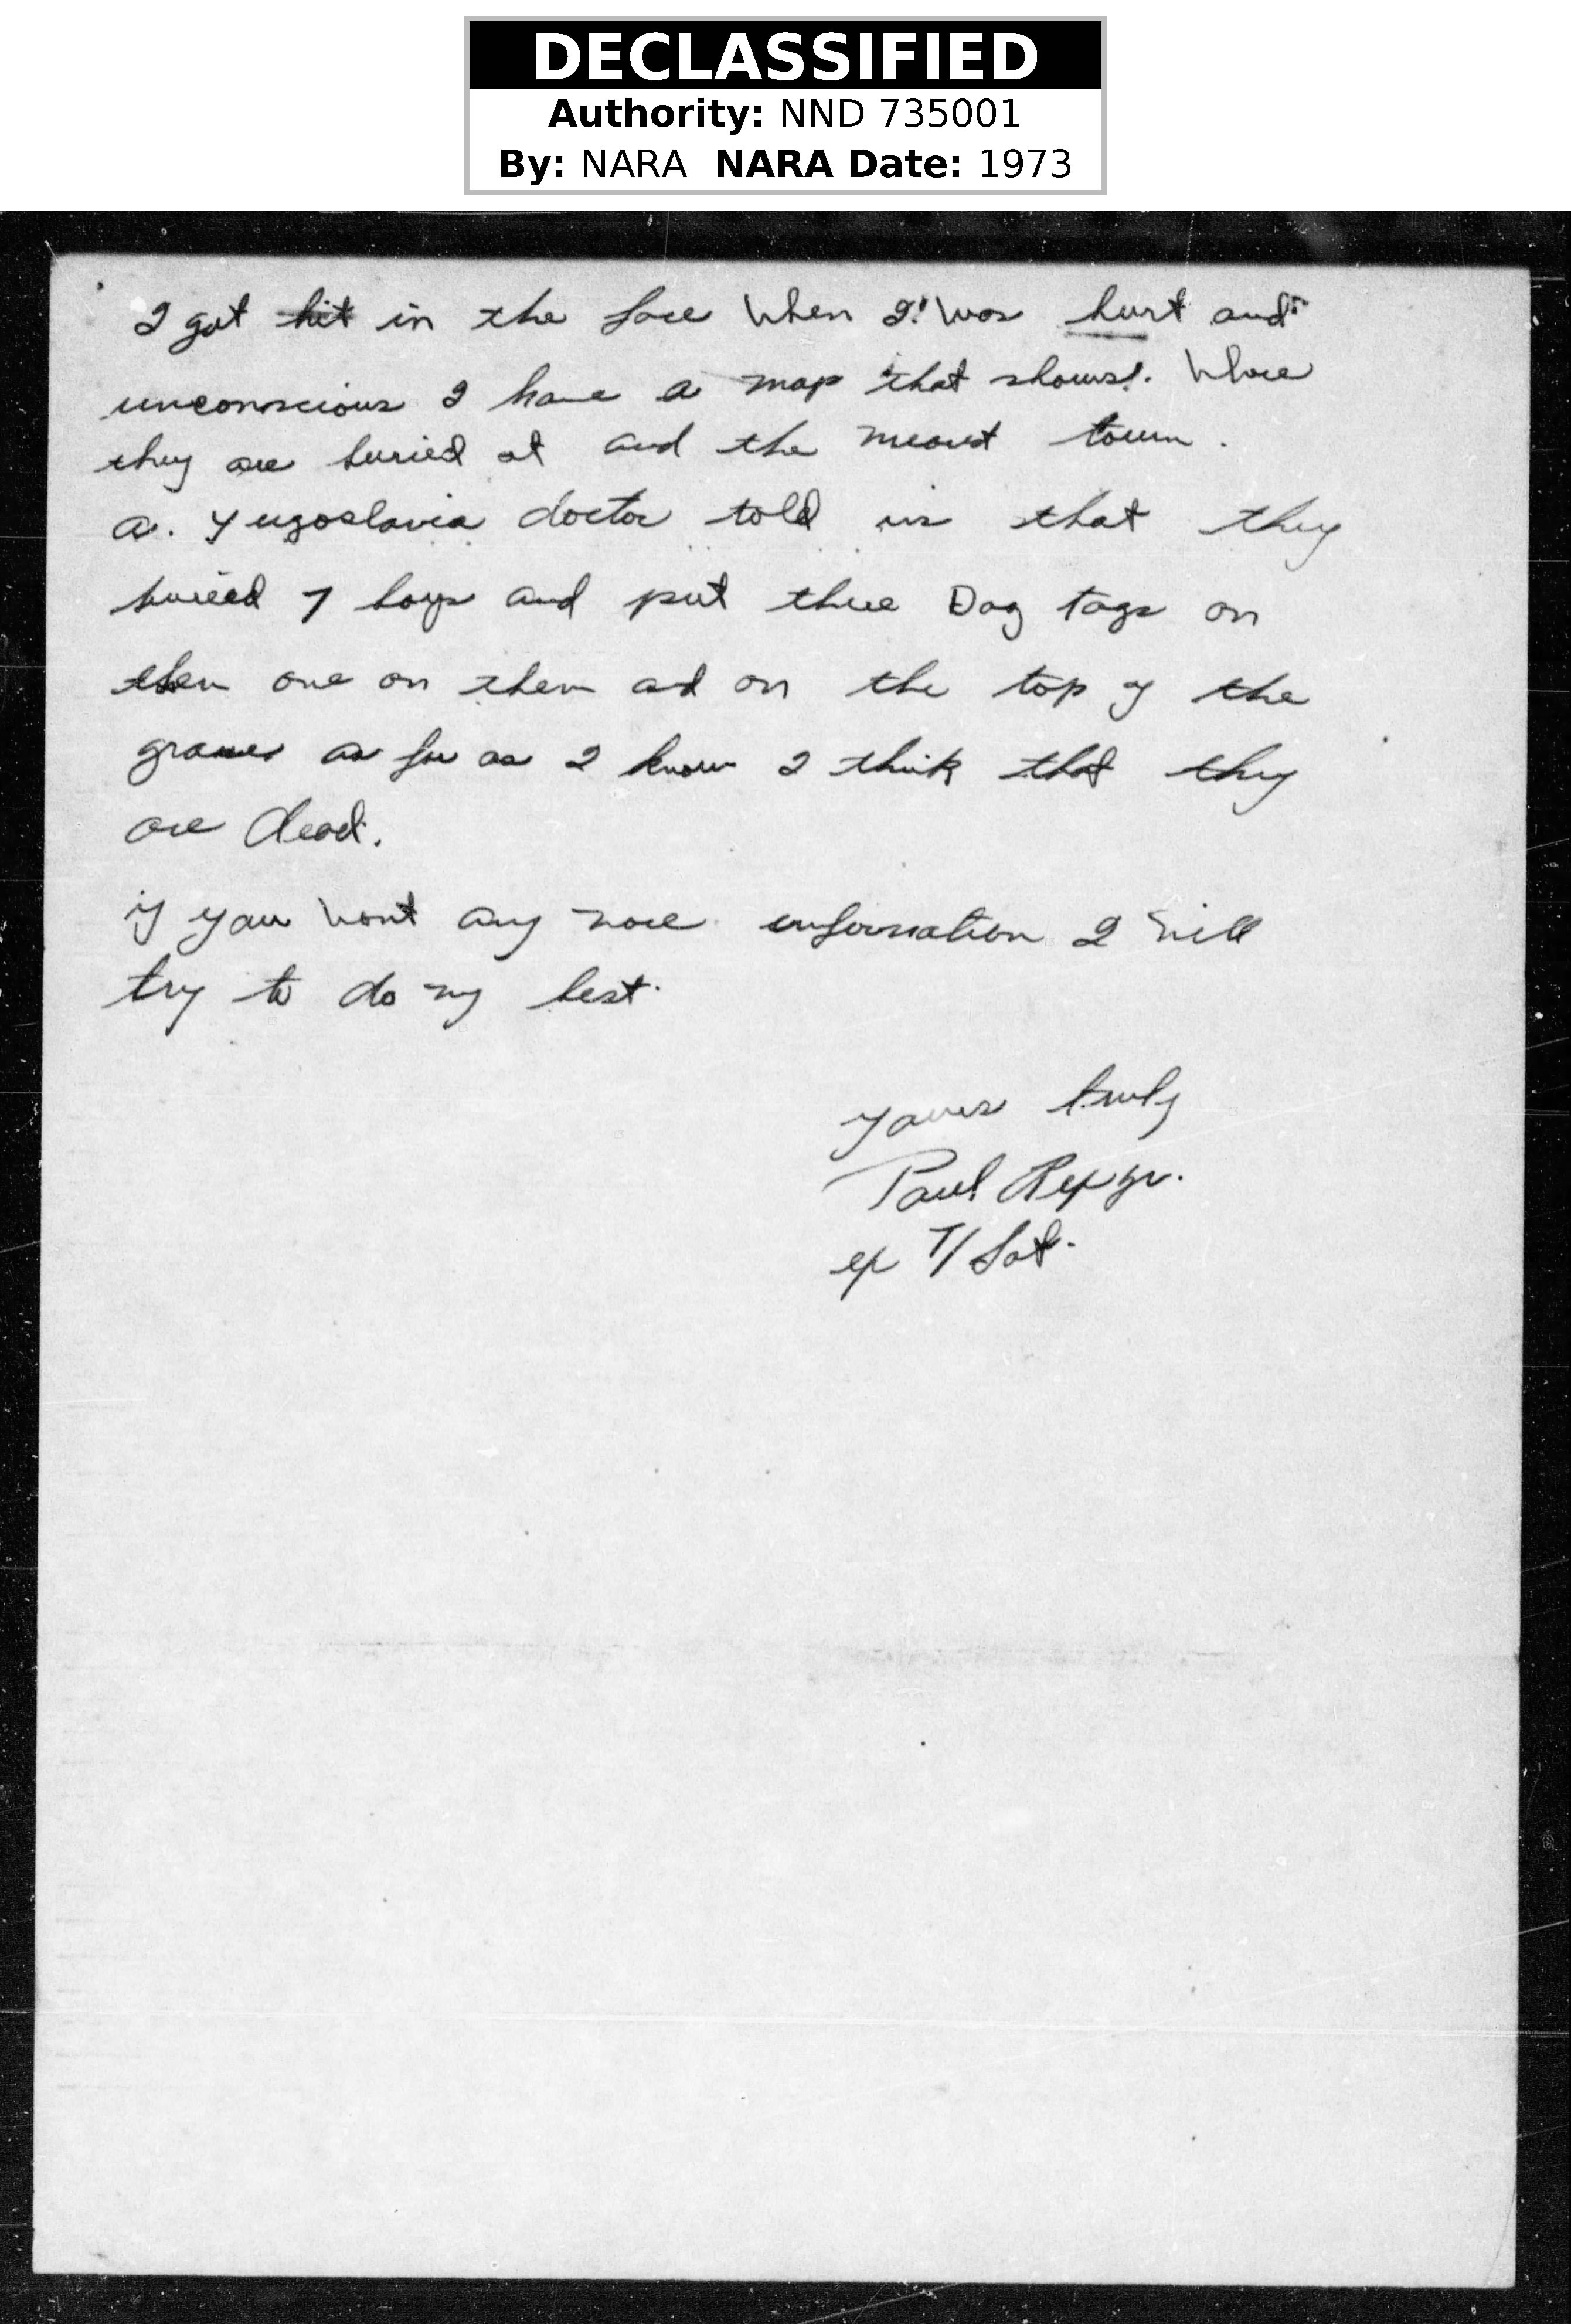 DECLASSIFIED
Authority: NND 735001
By: NARA NARA Date: 1973
I got hit in the face when I was hurt and
unconscious I have a map that shows. Where
they are buried at and the nearest town.
a. Yugoslavia doctor told us that they
buried 7 boys and put there Dog tags on
them one on them ad on the top of the
graves as far as I know I think that they
are dead.
if you want any more information I will
try to do my best.
yours truly
Paul Rep Jr.
ex T/Sgt.